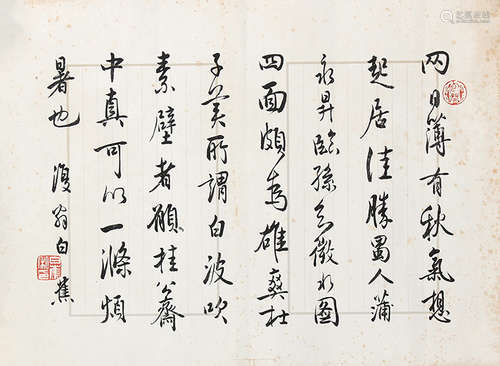 兩日薄有秋氣想
起居佳勝蜀人蒲
永昇臨孫知微水圖
四面頗為雄爽杜
子美所謂白波吹
素壁者願挂公齋
中真可以一滌煩
暑也 復翁白蕉